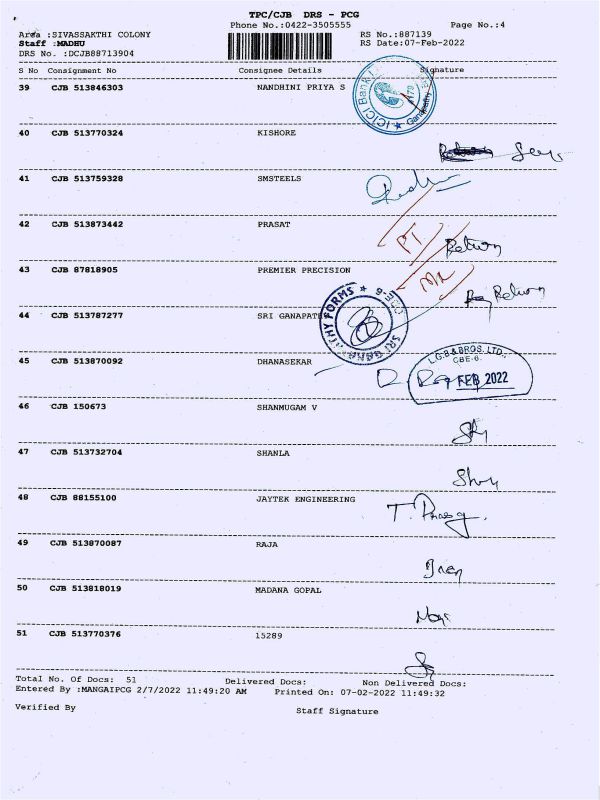 TPC/CJB DRS - PCG
Phone No.:0422-3505555 Page No.:4
Area :SIVASSAKTHI COLONY RS No.:887139
Staff :MADHU RS Date:07-Feb-2022
DRS No. :DCJB88713904
S No Consignment No Consignee Details Signature
39 CJB 513846303 NANDHINI PRIYA S
ICICI Bank Ganapathy
40 CJB 513770324 KISHORE
41 CJB 513759328 SMSTEELS
42 CJB 513873442 PRASAT
PT Return
43 CJB 87818905 PREMIER PRECISION
Return
44 CJB 513787277 SRI GANAPATH
CBE-6
45 CJB 513870092 DHANASEKAR
L.G.B & BROS. LTD.,
CBE-6.
FEB 2022
46 CJB 150673 SHANMUGAM V
47 CJB 513732704 SHANLA
48 CJB 88155100 JAYTEK ENGINEERING
49 CJB 513870087 RAJA
50 CJB 513818019 MADANA GOPAL
51 CJB 513770376 15289
Total No. Of Docs: 51 Delivered Docs: Non Delivered Docs:
Entered By :MANGAIPCG 2/7/2022 11:49:20 AM Printed On: 07-02-2022 11:49:32
Verified By Staff Signature